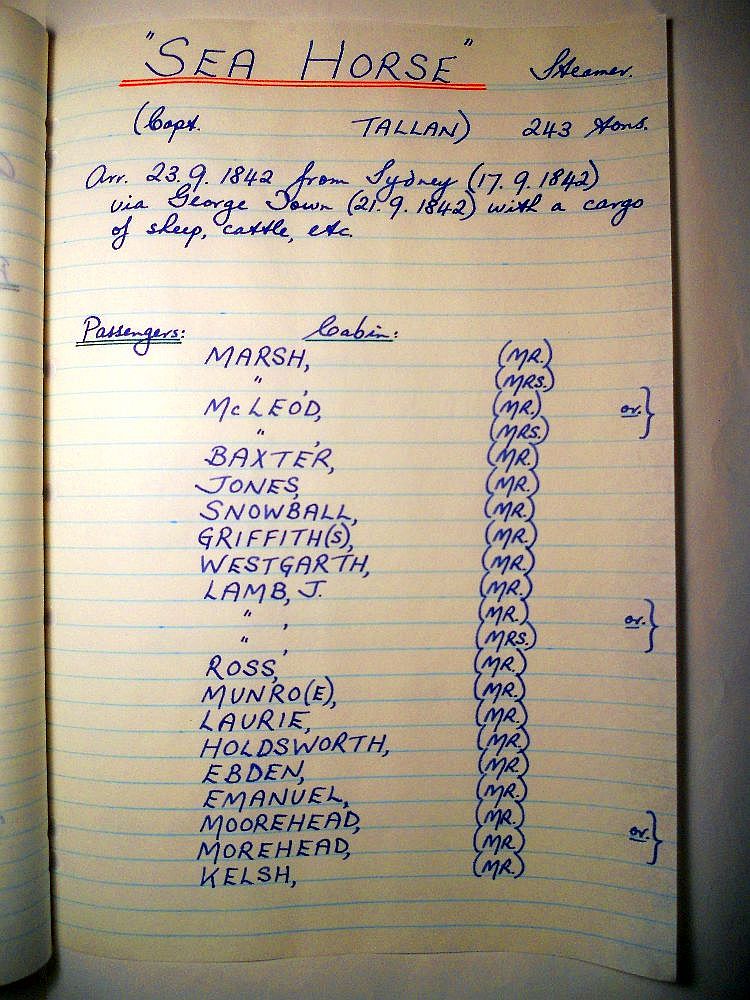 "SEA HORSE" Steamer.
(Capt. TALLAN) 243 tons.
Arr. 23.9.1842 from Sydney (17.9.1842)
via George Town (21.9.1842) with a cargo
of sheep, cattle, etc.
Passengers: Cabin:
MARSH, (MR.)
" , (MRS.)
McLEOD, (MR.) or. }
" , (MRS.)
BAXTER, (MR.)
JONES, (MR.)
SNOWBALL, (MR.)
GRIFFITH(S), (MR.)
WESTGARTH, (MR.)
LAMB, J. (MR.)
" , (MR.) or. }
" , (MRS.)
ROSS, (MR.)
MUNRO(E), (MR.)
LAURIE, (MR.)
HOLDSWORTH, (MR.)
EBDEN, (MR.)
EMANUEL, (MR.)
MOOREHEAD, (MR.) or. }
MOREHEAD, (MR.)
KELSH, (MR.)